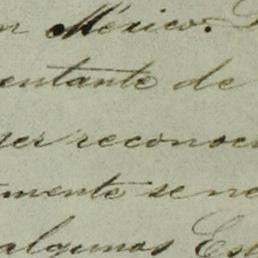 en México.
entante de
ser reconoc
mente se ne
algunas Est